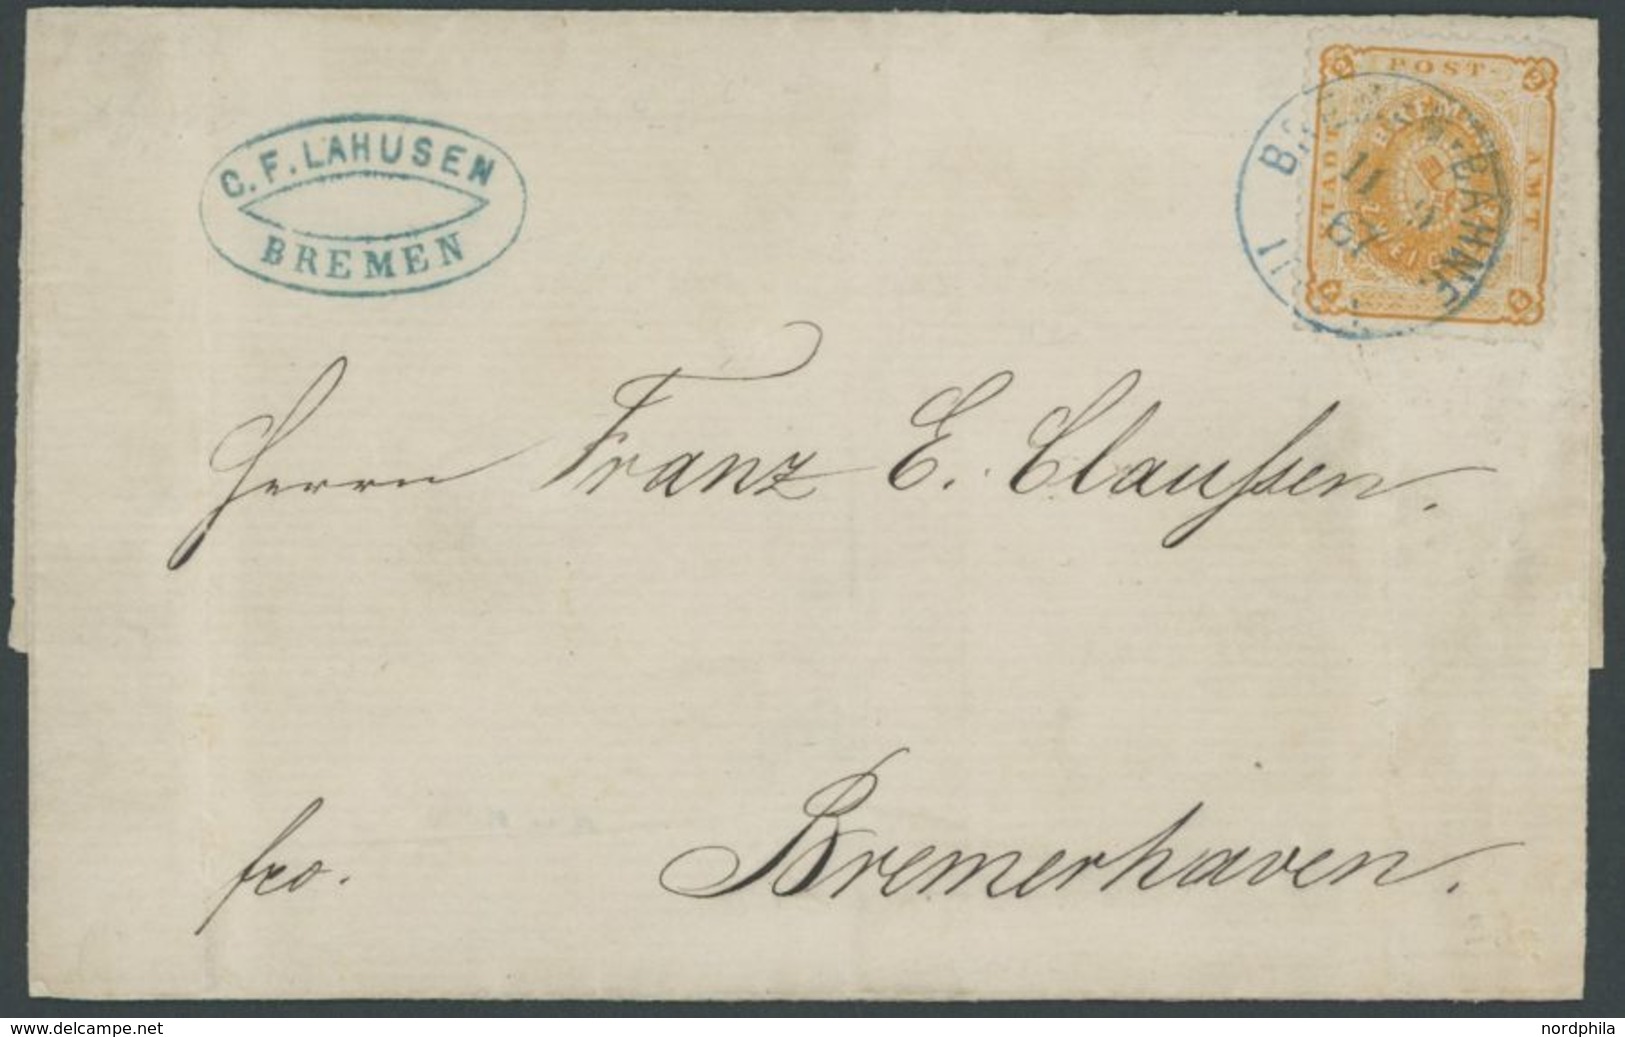 C. F. LAHUSEN
BREMEN
POST-
STADT
AMT.
BREMEN
BAHNHF.
11
9
67
Herrn Franz E. Claußen.
fco. Bremerhaven.
www.delcampe.net
nordphila